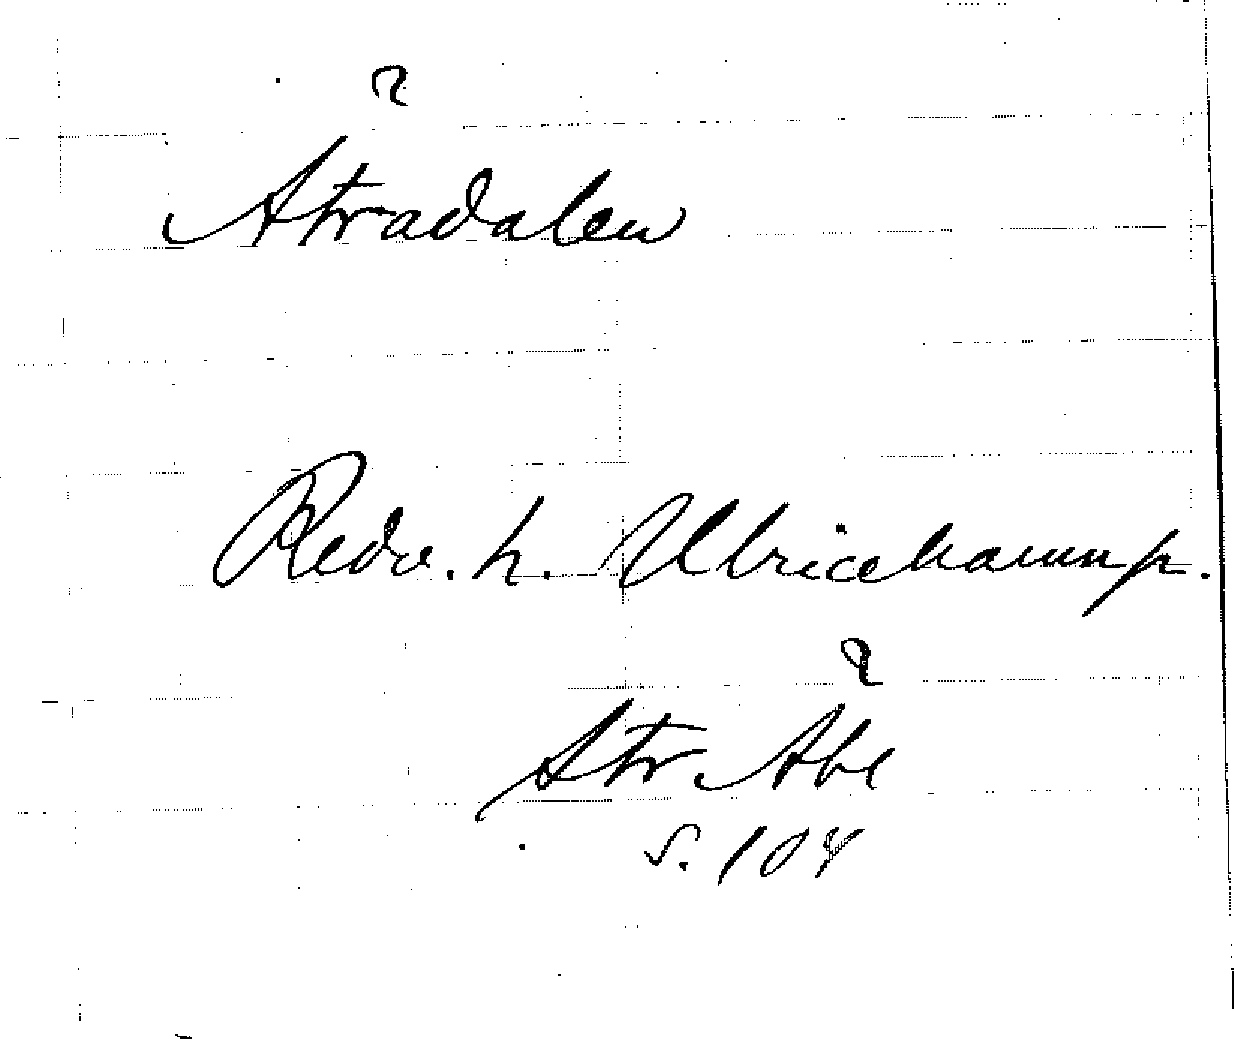 Ätradalen
Redv. h. Ulricehamn p.
Str Äbe
s. 108